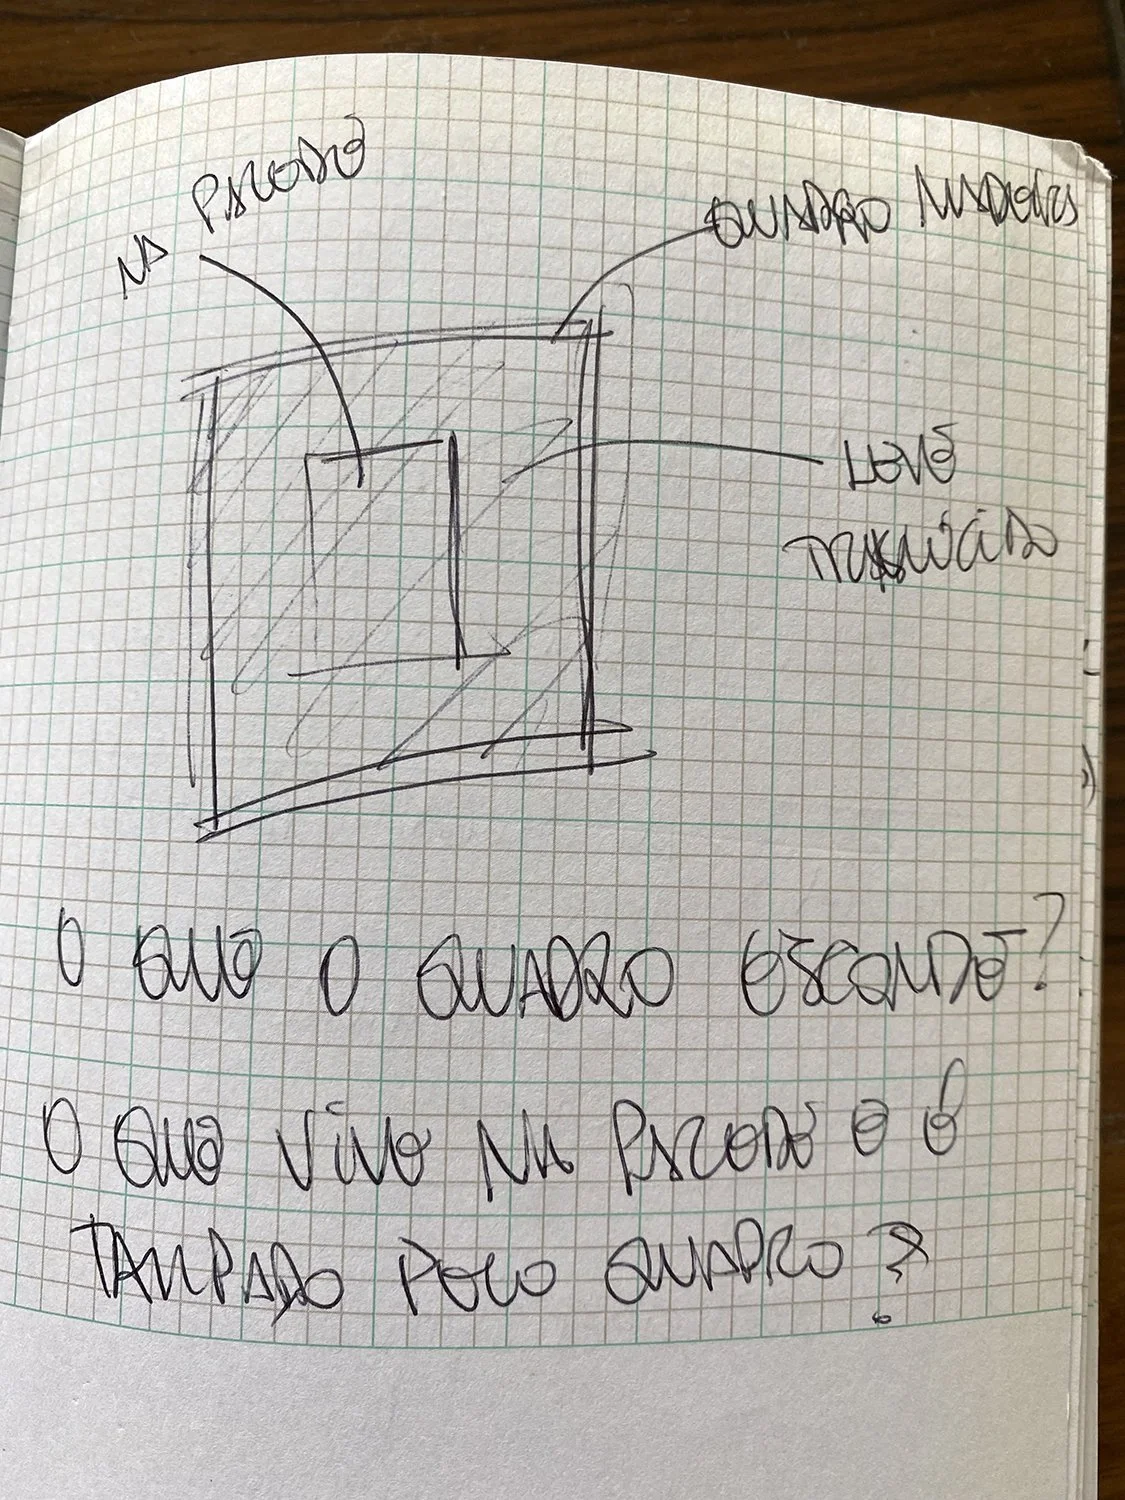 NA PAREDE
QUADRO MADEIRA
LEVE
TRANSLÚCIDO
O QUE O QUADRO ESCONDE?
O QUE VIVE NA PAREDE E É
TAMPADO PELO QUADRO?